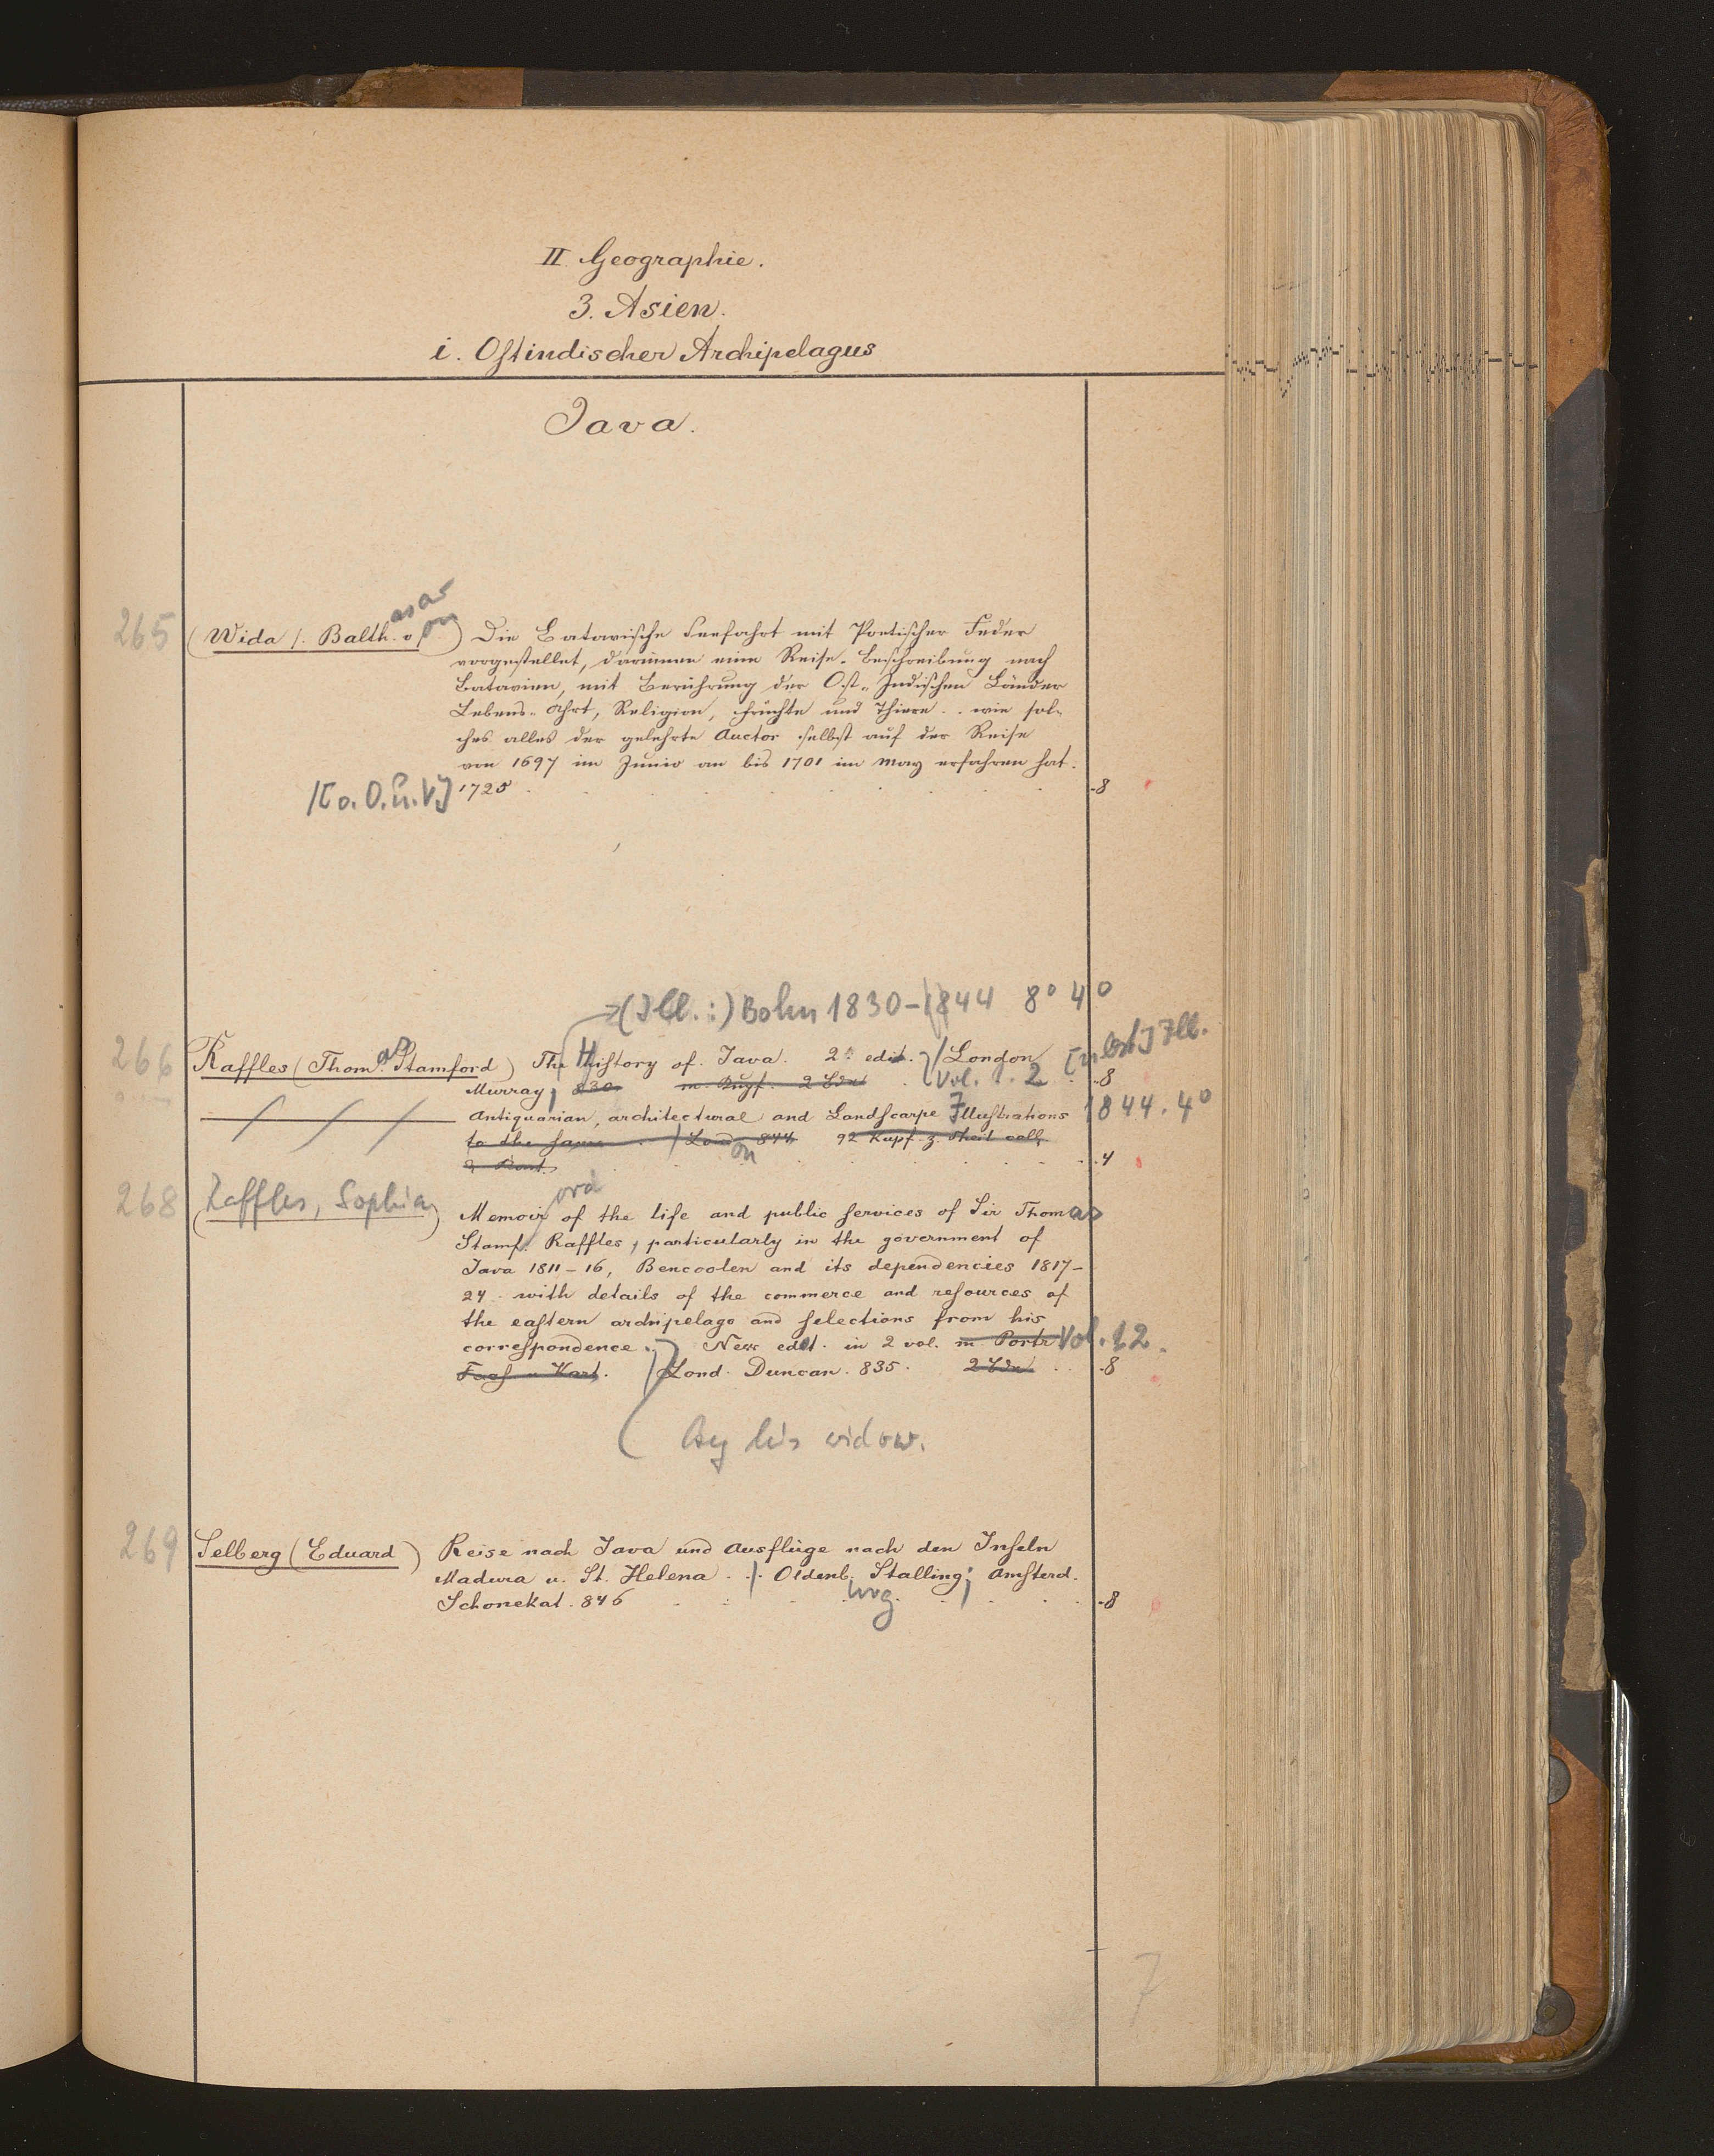 II. Geographie.
3. Asien.
i. Ostindischer Archipelagus
Java.
265 (Wida /. Balth.asar v.on) Die Batavische Seefahrt mit Poetischer Feder
vorgestellet, darinnen eine Reise-Beschreibung nach
Batavien, mit Berührung der Ost-Indischen Länder
Lebens-Ahrt, Religion, Früchte und Thiere .. wie sol-
ches alles der gelehrte Auctor selbst auf der Reise
von 1697 im Junio an bis 1701 im May erfahren hat.
/[o. O. u. V] 1725 . . . . . . . . -8
→(Ill.:) Bohn 1830-1844 8° 4°
266 Raffles (Thom.as Stamford) The History of Java. 2. edit. / London Ill.
Murray, 830. m. 2 Bde Vol. 1. 2 .8
Antiquarian, architectural and Landscarpe Illustrations 1844. 4°
to the same . / London 844 92 Kupf. z. Theil coll.
.4
268 (Raffles, Sophia) Memoir of the life and public services of Sir Thomas
Stamf.ord Raffles, particularly in the government of
Java 1811-16, Bencoolen and its dependencies 1817-
24 with details of the commerce and resources of
the eastern archipelago and selections from his
correspondence. New edit. in 2 vol. m. Portr Vol. 1.2.
Facs. u Kart. / Lond. Duncan. 835. 2 Bde .. .8
( by his widow.
269 Selberg (Eduard) Reise nach Java und Ausflüge nach den Inseln
Madura u. St. Helena . . / Oldenb.urg Stalling; Amsterd.
Schonekat. 846 . . . . . . . -8
7